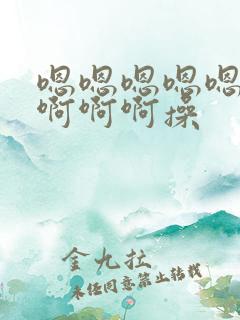 嗯嗯嗯嗯嗯
啊啊啊操
金九拉
未经同意禁止转载